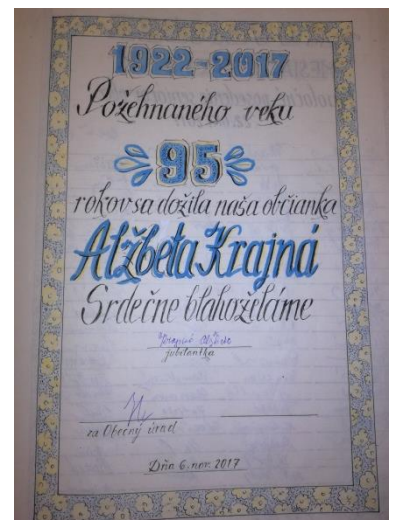 1922-2017
Požehnaného veku
95
rokov sa dožila naša občianka
Alžbeta Krajná
Srdečne blahoželáme
jubilantka
za Obecný úrad
Dňa 6. nov. 2017